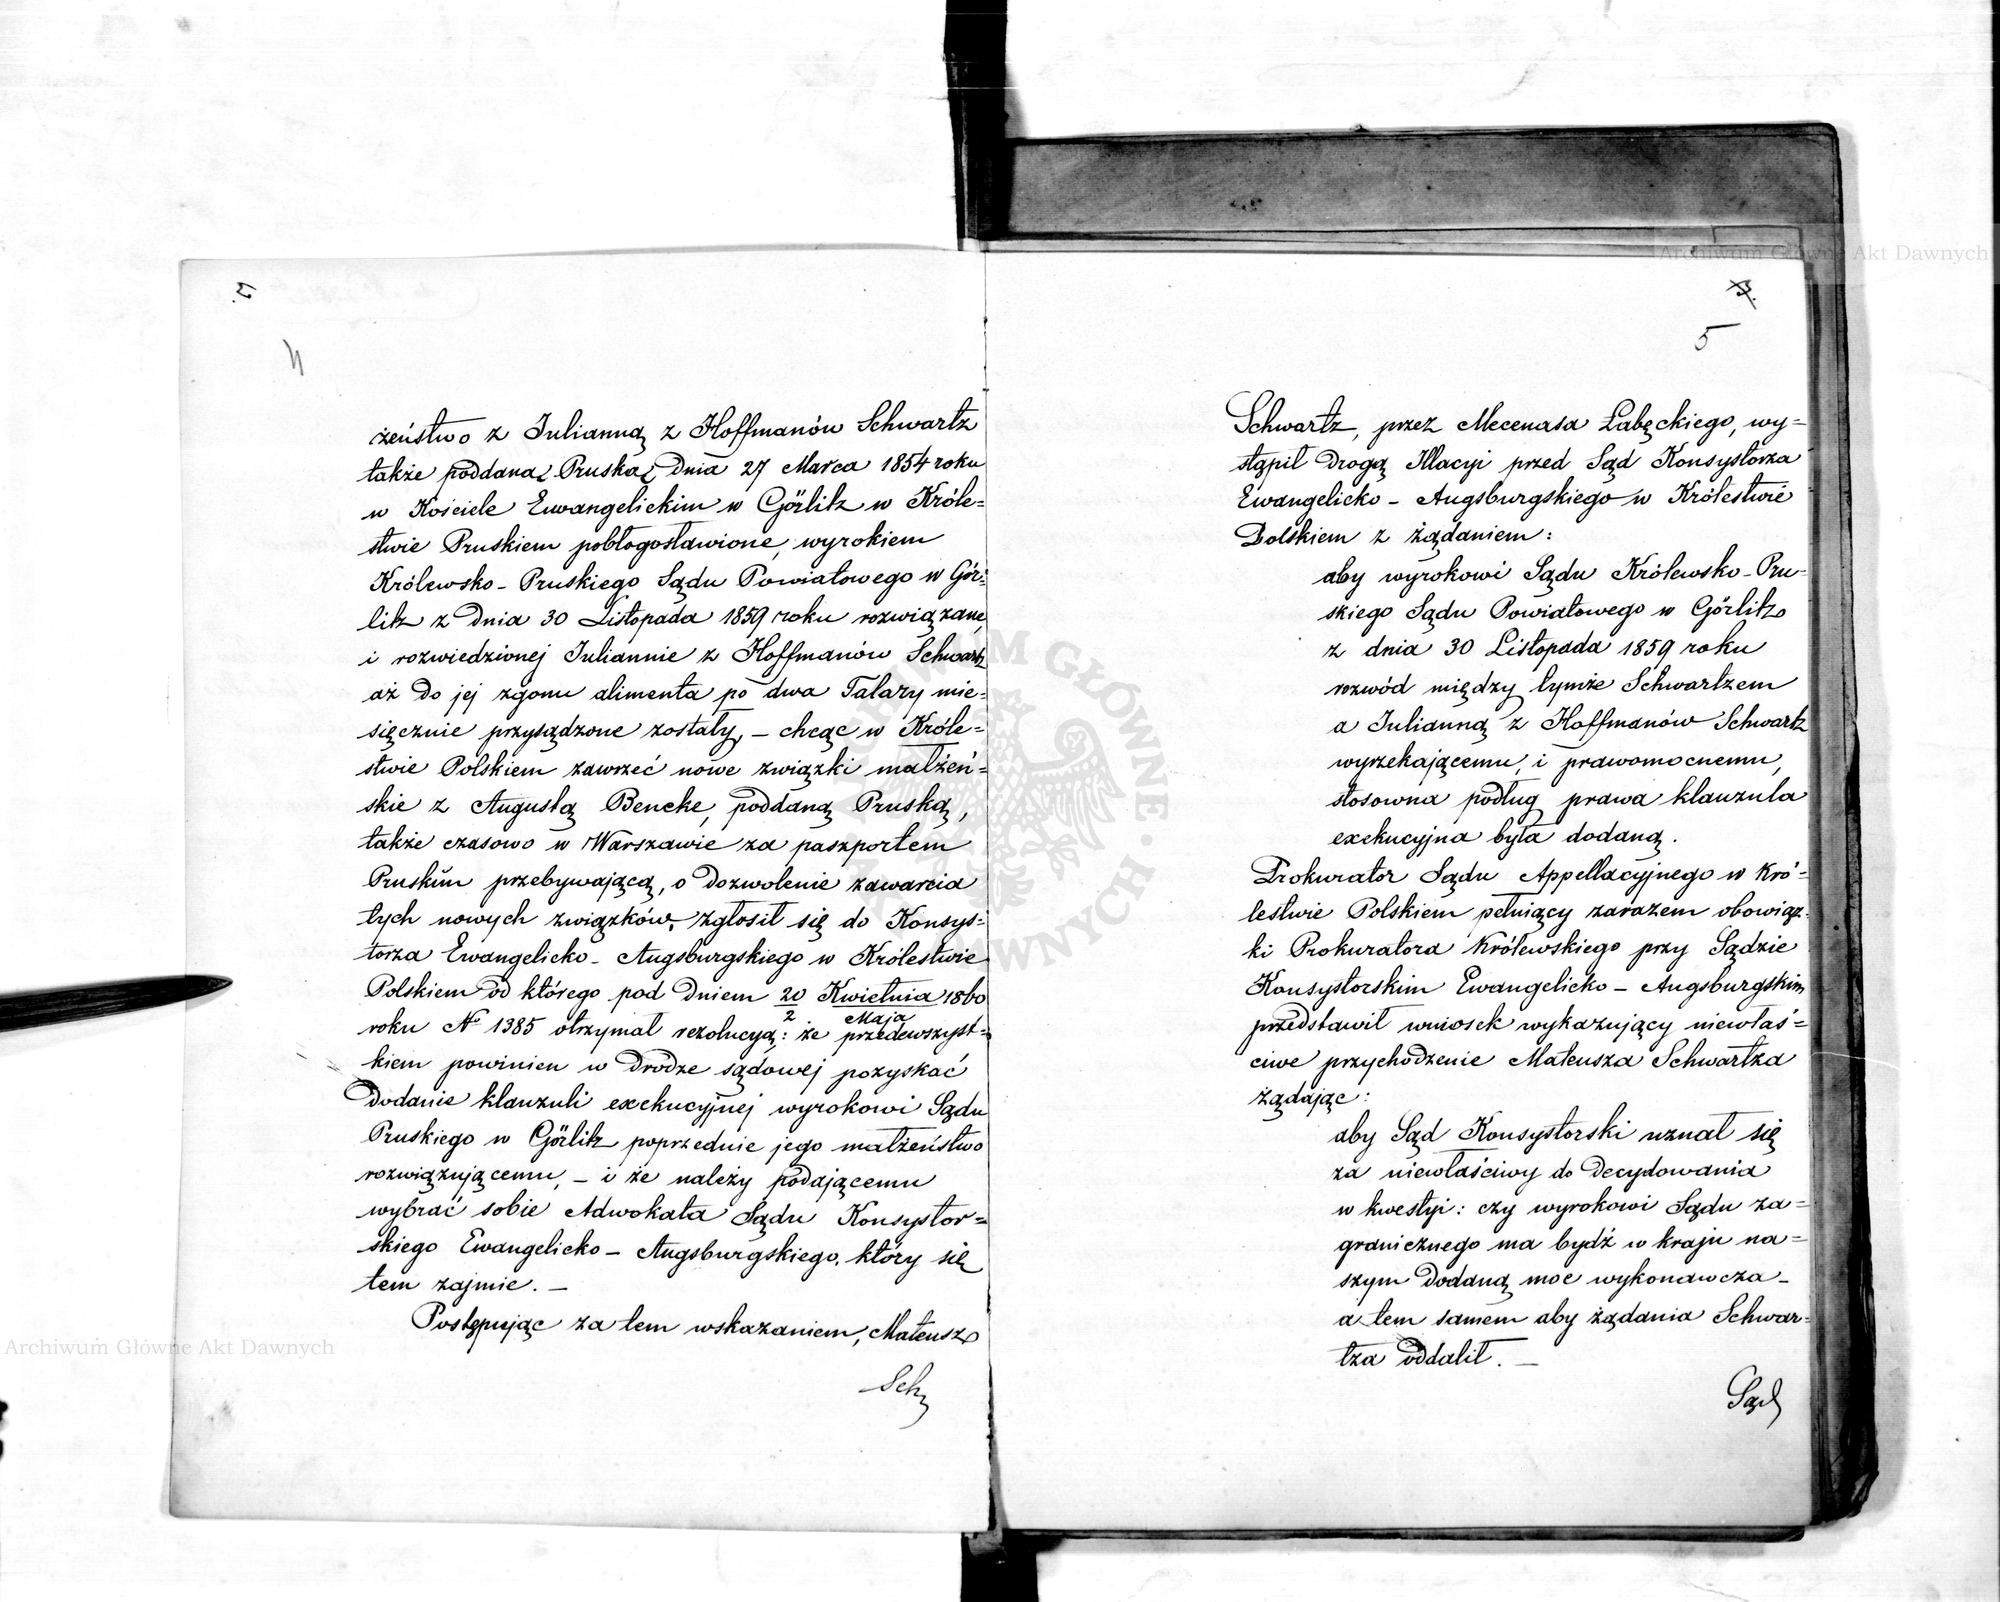 4
żeństwo z Julianną z Hoffmanów Schwartz
także poddaną Pruską dnia 27 Marca 1854 roku
w Kościele Ewangelickim w Görlitz w Króle=
stwie Pruskiem pobłogosławione, wyrokiem
Królewsko-Pruskiego Sądu Powiatowego w Gör=
litz z dnia 30 Listopada 1859 roku rozwiązane,
i rozwiedzionej Juliannie z Hoffmanów Schwartz
aż do jej zgonu alimenta po dwa Talary mie=
sięcznie przysądzone zostały, – chcąc w Króle=
stwie Polskiem zawrzeć nowe związki małżeń=
skie z Augustą Bencke, poddaną Pruską,
także czasowo w Warszawie za paszportem
Pruskim przebywającą, o dozwolenie zawarcia
tych nowych związków, zgłosił się do Konsys=
torza Ewangelicko-Augsburgskiego w Królestwie
Polskiem od którego pod dniem 20/2 Kwietnia/Maja 1860
roku No 1385 otrzymał rezolucyą: że przedewszyst=
kiem powinien w drodze sądowej pozyskać
dodanie klauzuli exekucyjnej wyrokowi Sądu
Pruskiego w Görlitz poprzednie jego małżeństwo
rozwiązującemu, – i że należy podającemu
wybrać sobie Adwokata Sądu Konsystor=
skiego Ewangelicko-Augsburgskiego, który się
tem zajmie. –
Postępując za tem wskazaniem, Mateusz
Sch
5
Schwartz, przez Mecenasa Łabęckiego, wy=
stąpił drogą Illacyi przed Sąd Konsystorza
Ewangelicko-Augsburgskiego w Królestwie
Polskiem z żądaniem:
aby wyrokowi Sądu Królewsko-Pru=
skiego Sądu Powiatowego w Görlitz
z dnia 30 Listopada 1859 roku
rozwód między tymże Schwartzem
a Julianną z Hoffmanów Schwartz
wyrzekającemu, i prawomocnemu,
stosowna podług prawa klauzula
exekucyjna była dodaną.
Prokurator Sądu Appellacyjnego w Kró=
lestwie Polskiem pełniący zarazem obowiąz=
ki Prokuratora Królewskiego przy Sądzie
Konsystorskim Ewangelicko-Augsburgskim
przedstawił wniosek wykazujący niewłaś=
ciwe przychodzenie Mateusza Schwartza
żądając:
aby Sąd Konsystorski uznał się
za niewłaściwy do decydowania
w kwestyi: czy wyrokowi Sądu za=
granicznego ma bydź w kraju na=
szym dodaną moc wykonawcza –
a tem samem aby żądania Schwar=
tza oddalił. –
Sąd
Archiwum Główne Akt Dawnych
Archiwum Główne Akt Dawnych